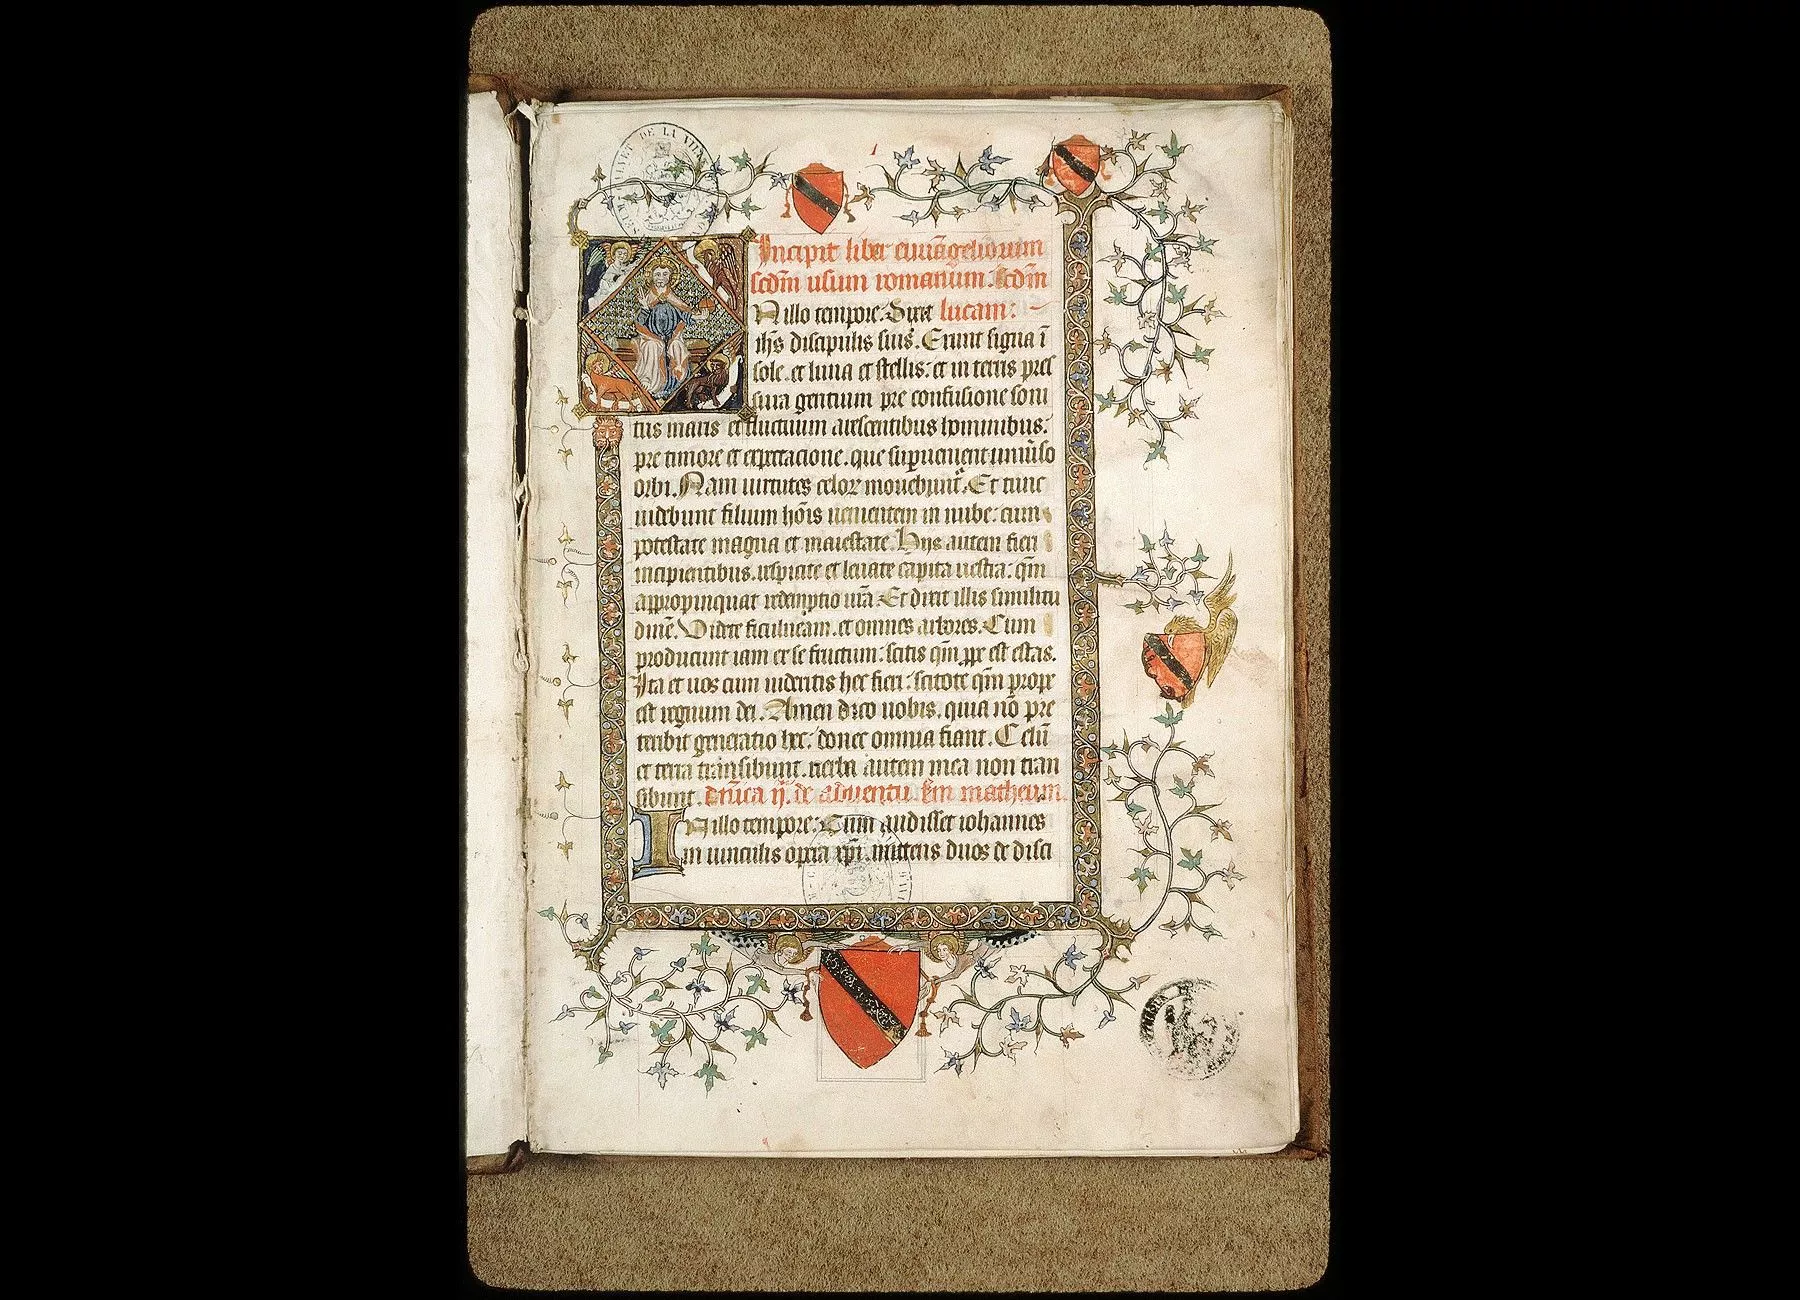 1
Incipit liber euuāgeliorum
scdm̄ usum romanum. Scdm̄
N illo tempore. Dixit lucam:
ihs̄ discipulis suis. Erunt signa ī
sole. et luna et stellis: et in terris pres
sura gentium pre confusione soni
tus maris et fluctuum arescentibus hominibus:
pre timore et expectacione. que supuenient uniūso
orbi. Nam uirtutes celoꝝ mouebunt᷑. Et tunc
uidebunt filium hōis uenientem in nube: cum
potestate magna et maiestate. Hijs autem fieri
incipientibus. respicite et leuate capita uestra: qm̄
appropinquat redemptio ur̄a. Et dixit illis similitu
dinē. Videte ficulneam. et omnes arbores. Cum
producunt iam ex se fructum: scitis qm̄ ꝓpe est estas.
Ita et uos cum uideritis hec fieri: scitote qm̄ prope
est regnum dei. Amen dico uobis. quia nō pre
teribit generatio hec: donec omnia fiant. Celū
et terra transibunt. uerba autem mea non tran
sibunt. Dn̄ica ij. de aduentu. Sm̄ matheum.
IN illo tempore: Cum audisset iohannes
in uinculis opera xp̄i. mittens duos de disci